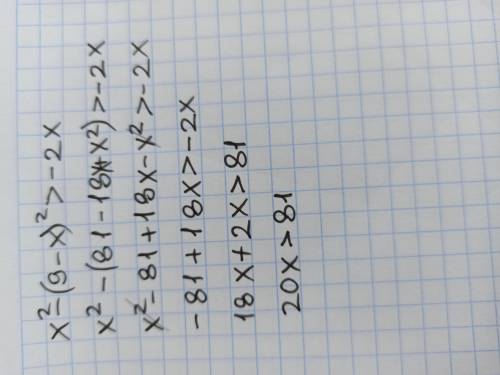 x²-(9-x)²>-2x
x²-(81-18x+x²)>-2x
x²-81+18x-x²>-2x
-81+18x>-2x
18x+2x>81
20x>81